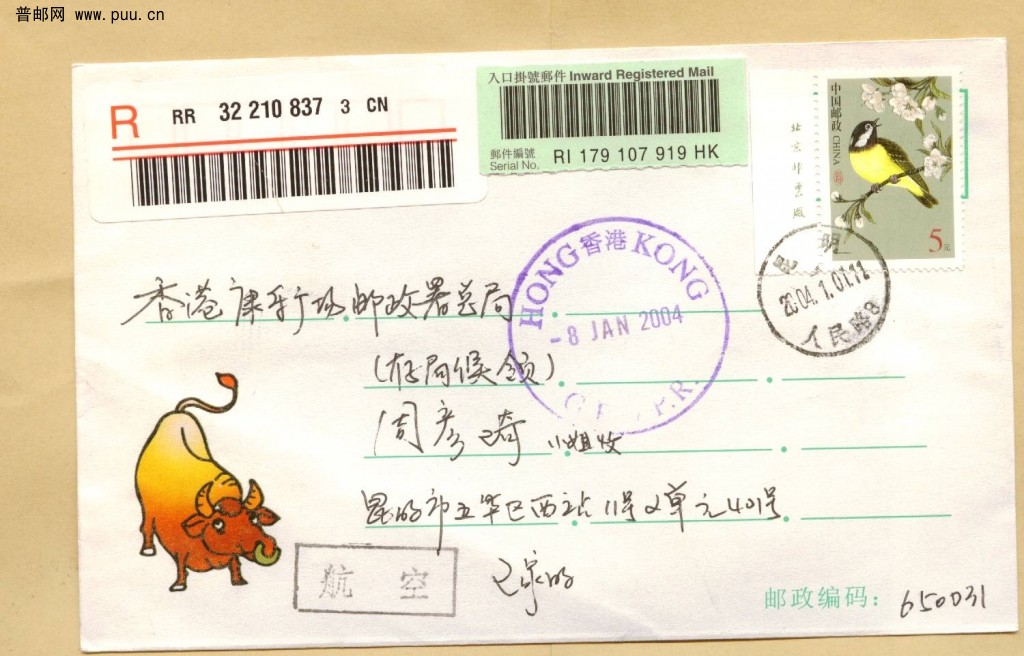 普邮网 www.puu.cn
R RR 32 210 837 3 CN
入口掛號郵件 Inward Registered Mail
郵件編號
Serial No. RI 179 107 919 HK
中国邮政 CHINA
北京邮票厂
5元
HONG 香港 KONG
-8 JAN 2004
G.P.O. R.R.
昆明
2004.1.01.11
人民路8
香港康乐广场邮政署总局
(存局候领)
周彦琦 小姐收
昆明市五华区西站11号2单元401号
航空
邮政编码: 650031